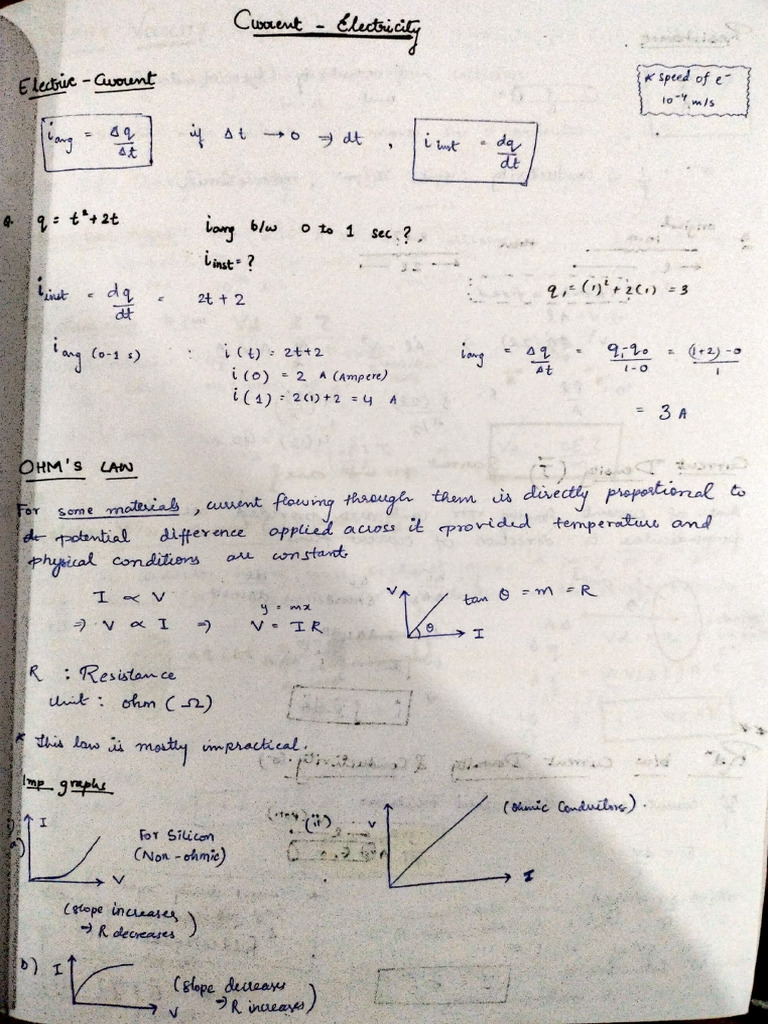 Current - Electricity
Electric - Current
* speed of e⁻
10⁻⁴ m/s
i avg = Δq/Δt   if Δt → 0 ⇒ dt ,   i inst = dq/dt
Q. q = t² + 2t   i avg b/w 0 to 1 sec ?
i inst = ?
i inst = dq/dt = 2t + 2   q₁ = (1)² + 2(1) = 3
i avg (0-1 s) : i(t) = 2t+2   i avg = Δq/Δt = q₁-q₀/1-0 = (1+2)-0/1
i(0) = 2 A (Ampere)
i(1) = 2(1)+2 = 4 A   = 3 A
OHM'S LAW
For some materials, current flowing through them is directly proportional to
potential difference applied across it provided temperature and
physical conditions are constant.
I ∝ V   V   tan θ = m = R
y = mx
⇒ V ∝ I ⇒ V = IR   θ   I
R : Resistance
Unit : ohm (Ω)
* This law is mostly impractical.
Imp graphs
a) I   For Silicon   V   (Ohmic Conductors).
(Non-ohmic)
V   I
(slope increases
→ R decreases)
b) I   (slope decreases
→ R increases)
V